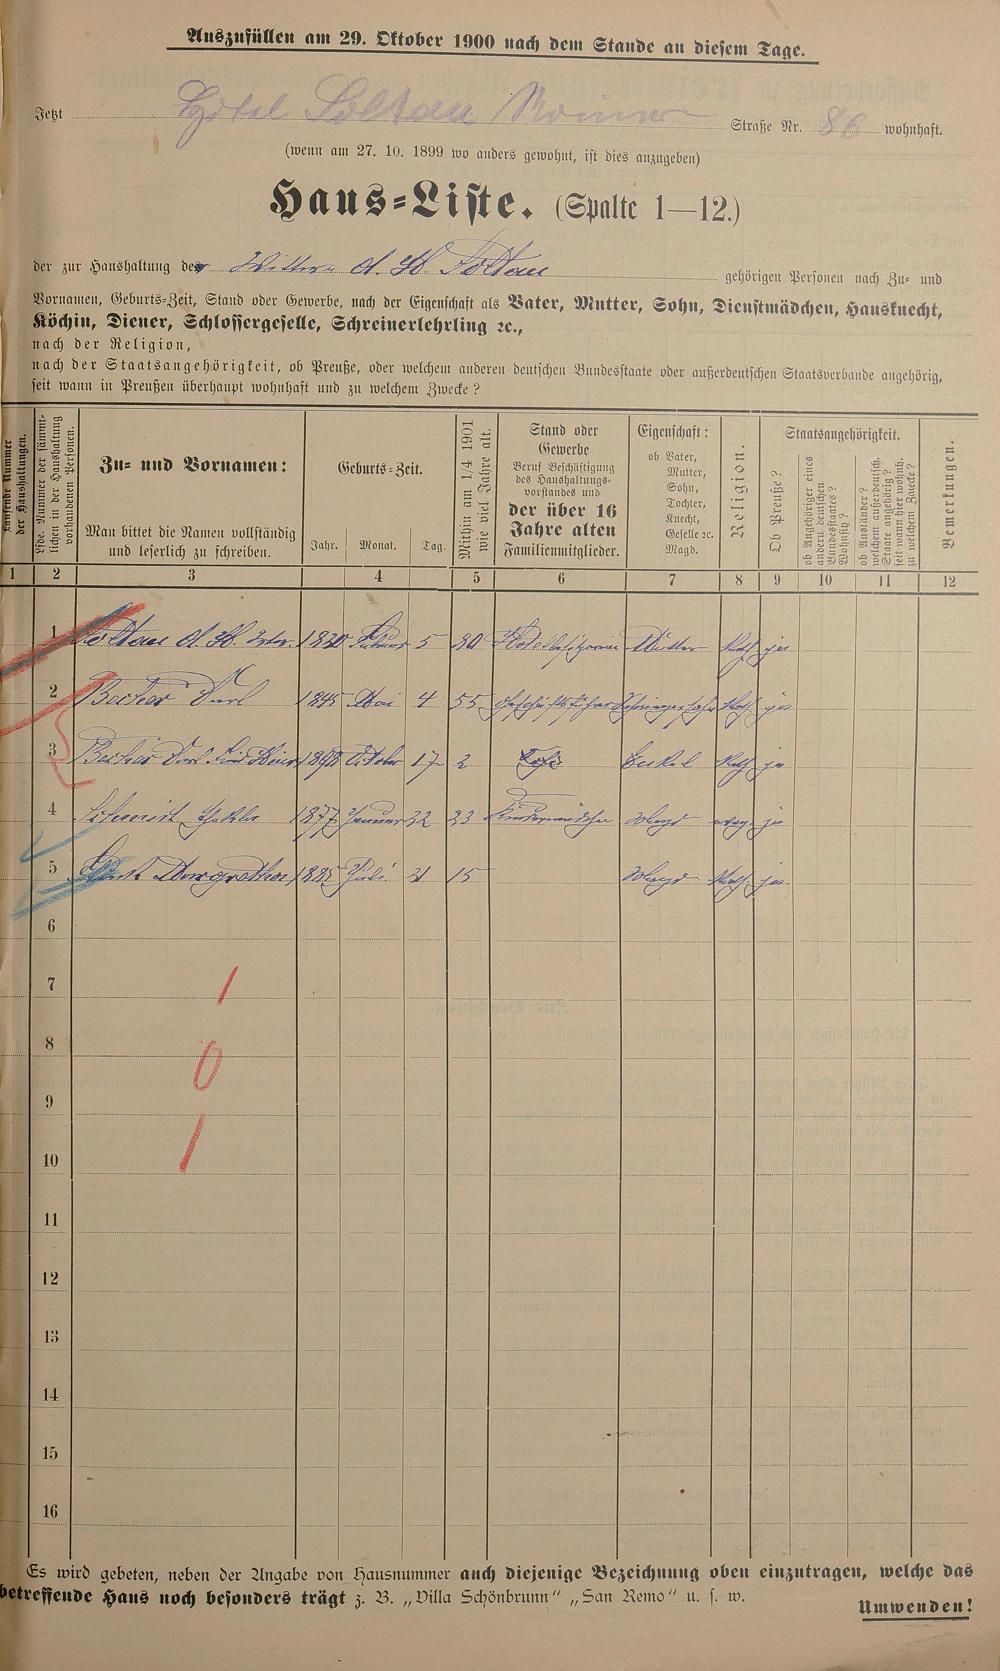 Auszufüllen am 29. Oktober 1900 nach dem Stande an diesem Tage.
Jetzt Hotel Soltau Römer Straße Nr. 86 wohnhaft.
(wenn am 27. 10. 1899 wo anders gewohnt, ist dies anzugeben)
Haus-Liste. (Spalte 1—12.)
der zur Haushaltung der Soltau gehörigen Personen nach Zu- und
Vornamen, Geburts-Zeit, Stand oder Gewerbe, nach der Eigenschaft als Vater, Mutter, Sohn, Dienstmädchen, Hausknecht,
Köchin, Diener, Schlossergeselle, Schreinerlehrling ꝛc.,
nach der Religion,
nach der Staatsangehörigkeit, ob Preuße, oder welchem anderen deutschen Bundesstaate oder außerdeutschen Staatsverbande angehörig,
seit wann in Preußen überhaupt wohnhaft und zu welchem Zwecke?
Laufende Nummer der Haushaltungen.
Lfde. Nummer der sämmtlichen in der Haushaltung vorhandenen Personen.
Zu- und Vornamen:
Man bittet die Namen vollständig
und leserlich zu schreiben.
Geburts-Zeit.
Jahr. Monat. Tag.
Mithin am 1/4 1901 wie viel Jahre alt.
Stand oder
Gewerbe
Beruf Beschäftigung
des Haushaltungs-
vorstandes und
der über 16
Jahre alten
Familienmitglieder.
Eigenschaft:
ob Vater,
Mutter,
Sohn,
Tochter,
Knecht,
Geselle ꝛc.
Magd.
Religion.
Staatsangehörigkeit.
Ob Preuße?
ob Angehöriger eines andern deutschen Bundesstaates? Wohnsitz?
ob Ausländer? welchem außerdeutsch. Staate angehörig? seit wann hier wohnh. zu welchem Zwecke?
Bemerkungen.
1 2 3 4 5 6 7 8 9 10 11 12
1 Soltau 5 Hotelbesitzerin Mutter Kath. ja
2 Becker Carl 1845 Mai 4 55 Geschäftsführer Schwiegersohn Kath. ja
3 Becker October 17 2 Enkel Kath. ja
4 1877 Januar 22 23 Kindermädchen Magd evang. ja
5 Margretha 1885 Juli 21 15 Magd Kath. ja
6
7 1
8 0
9
10 1
11
12
13
14
15
16
Es wird gebeten, neben der Angabe von Hausnummer auch diejenige Bezeichnung oben einzutragen, welche das
betreffende Haus noch besonders trägt z. B. „Villa Schönbrunn“ „San Remo“ u. s. w.
Umwenden!